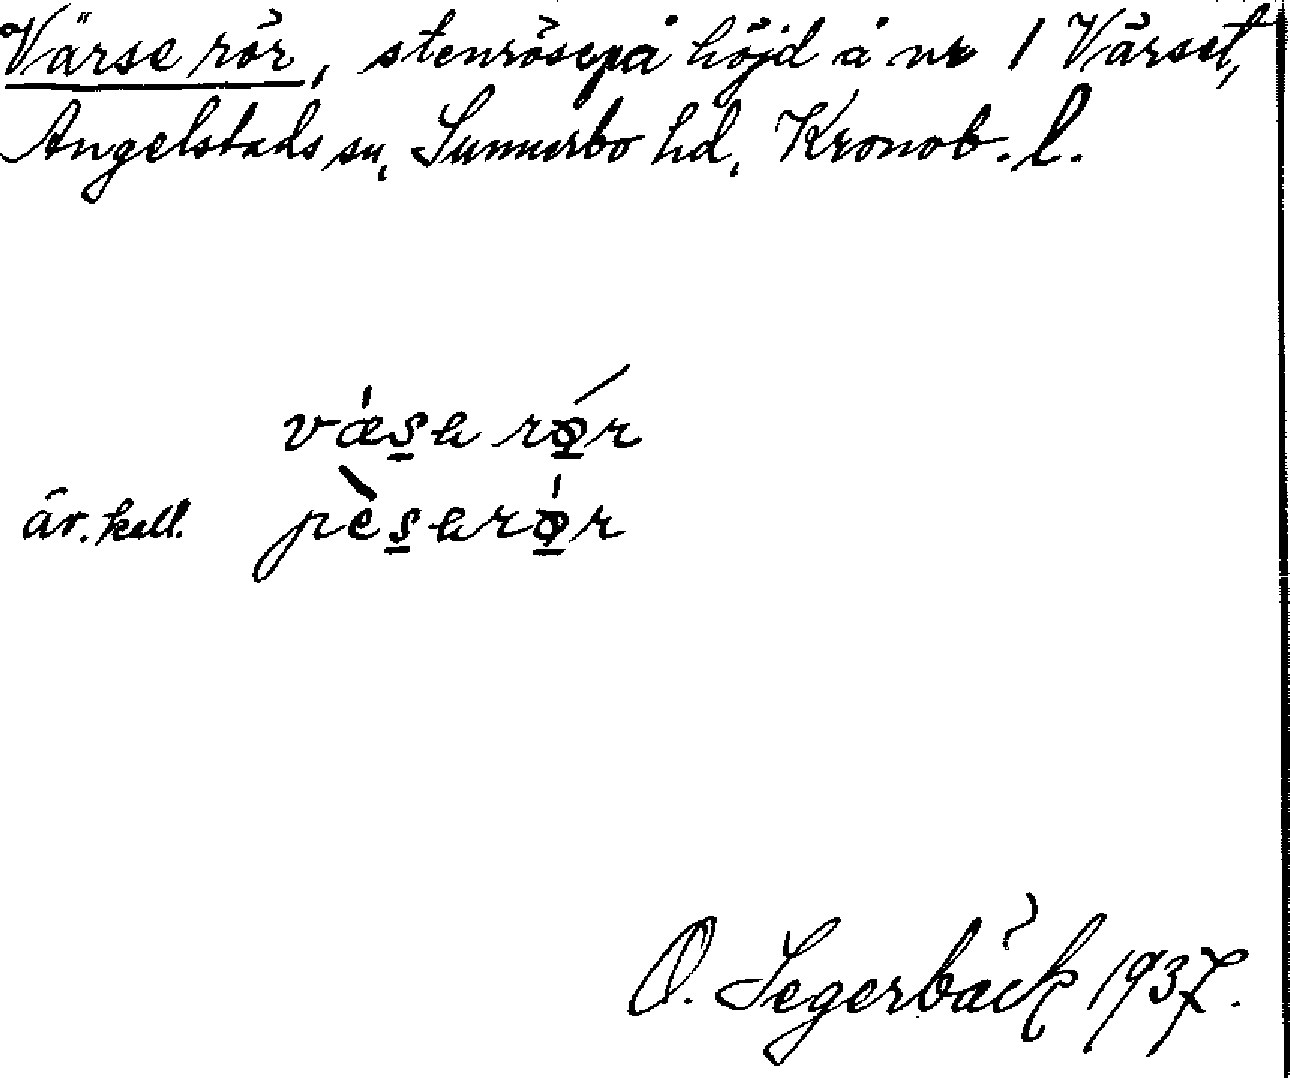 Värse rör, stenröse på höjd å nr 1 Värset,
Angelstads sn, Sunnerbo hd, Kronob. l.
væ̀s̱ɐ rǿ̱r
äv. kall. pès̱ɐrǿ̱r
O. Segerbäck 1937.